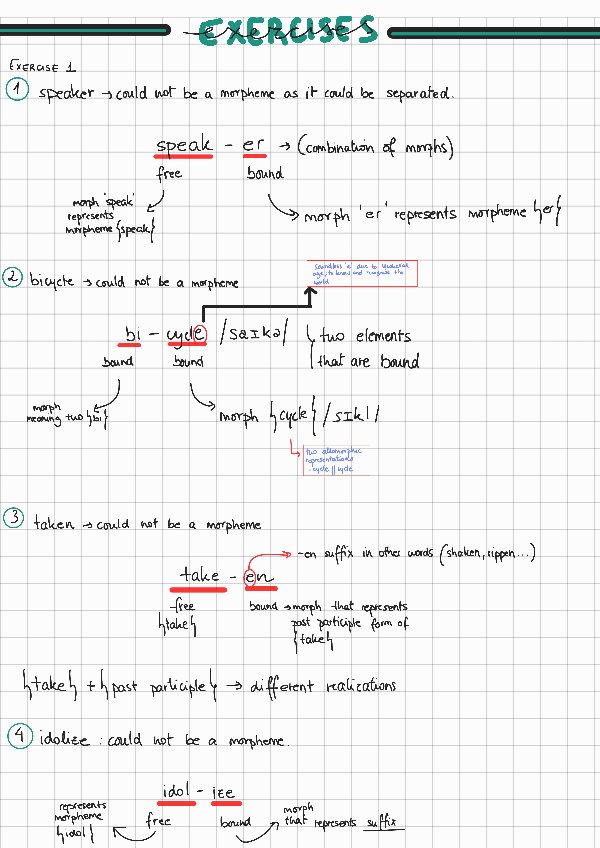 EXERCISES
EXERCISE 1
① speaker → could not be a morpheme as it could be separated.
speak - er → (combination of morphs)
free bound
morph 'speak'
represents
morpheme {speak}
morph 'er' represents morpheme {er}
② bicycle → could not be a morpheme
soundless 'e' due to Mediaeval
age, to know and recognize the
world
bi - cycle /saɪkə/ { two elements
that are bound
bound bound
morph
meaning two {bi}
morph {cycle} /sɪkl/
two allomorphic
representations
- cycle || cycle
③ taken → could not be a morpheme
-en suffix in other words (shaken, rippen...)
take - en
free
{take}
bound → morph that represents
past participle form of
{take}
{take} + {past participle} → different realizations
④ idolize : could not be a morpheme.
idol - ize
represents
morpheme
{idol}
free bound
morph
that represents suffix